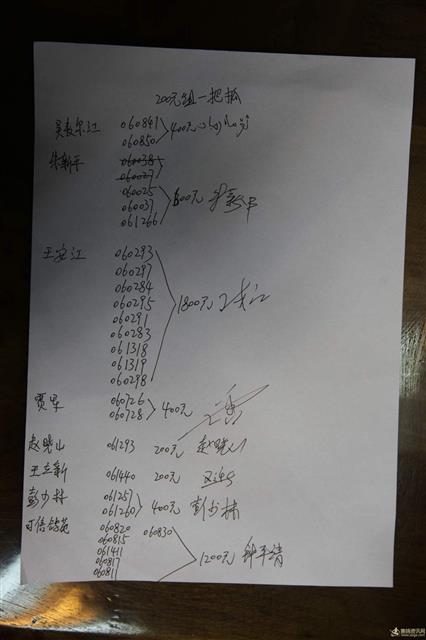 200元组一把抓
吴麦尔江 060841 400元
060850
朱新平 060038
060027
060025 600元 朱新平
060037
061266
王安江 060293
060297
060284
060295 1800元 王安江
060291
060283
061318
061319
060298
贾军 060726 400元
060728
赵晓山 061293 200元 赵晓山
王立新 061440 200元 王立新
彭少林 061257 400元 彭少林
061260
可信鸽苑 060820 060830
060815 1200元 钟平清
061411
060817
060811